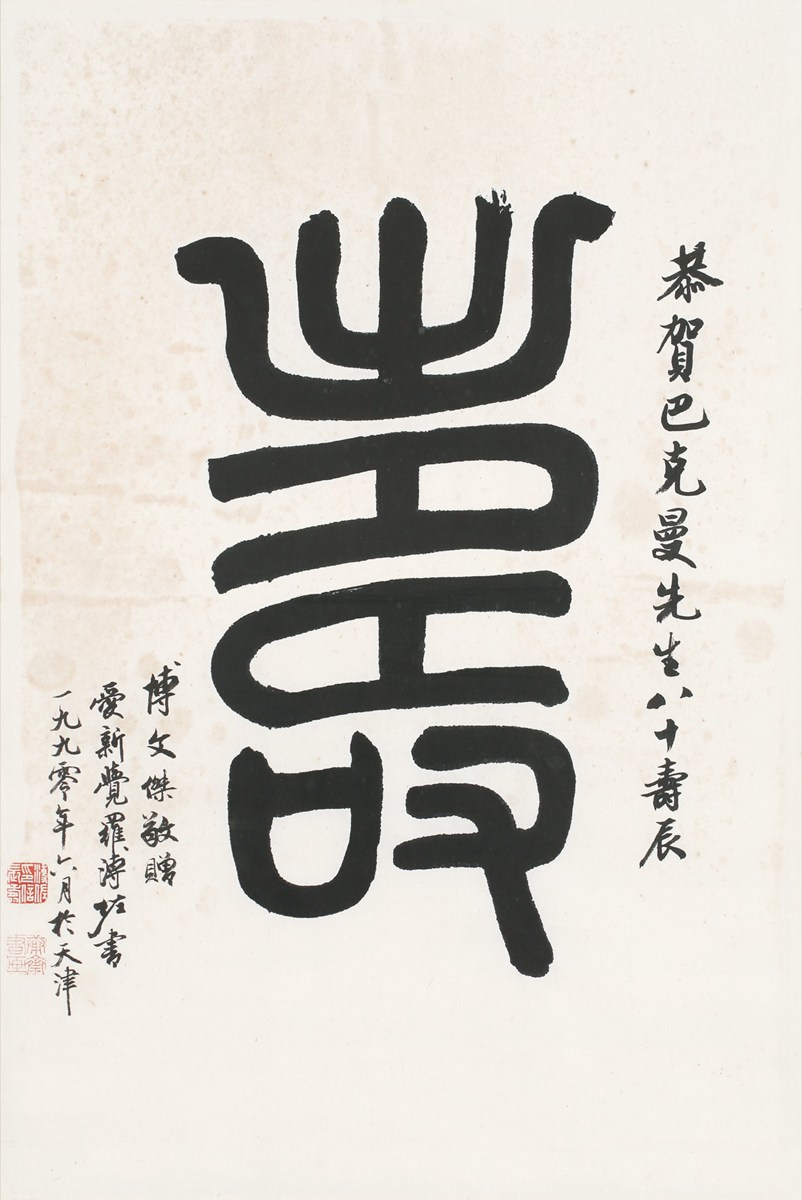 恭賀巴克曼先生八十壽辰
壽
博文傑敬贈
愛新覺羅溥佐書
一九九零年六月於天津